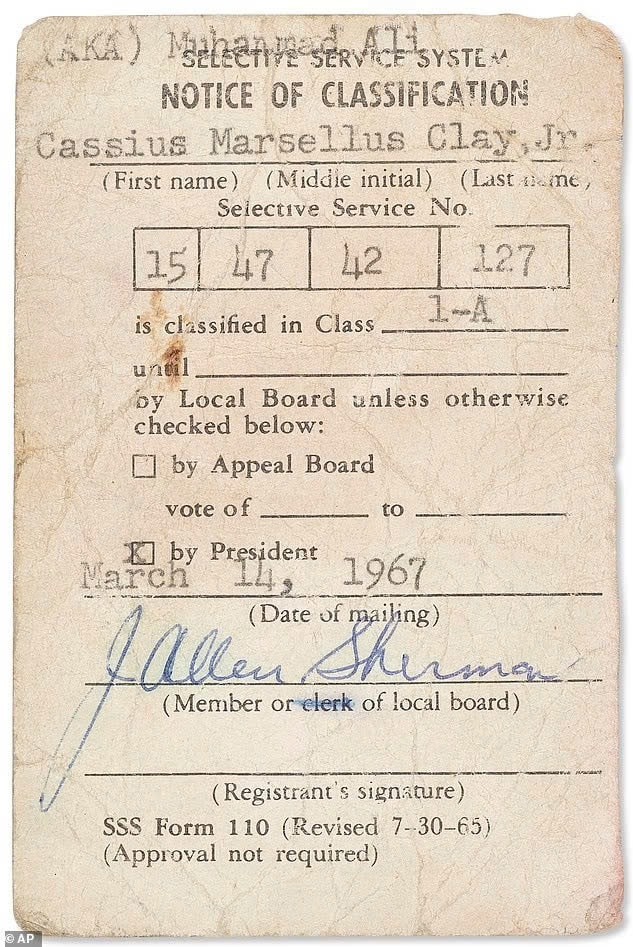 (AKA) Muhammad Ali
SELECTIVE SERVICE SYSTEM
NOTICE OF CLASSIFICATION
Cassius Marsellus Clay, Jr.
(First name) (Middle initial) (Last name)
Selective Service No.
15 47 42 127
is classified in Class 1-A
until
by Local Board unless otherwise
checked below:
☐ by Appeal Board
vote of ____ to ____
☒ by President
March 14, 1967
(Date of mailing)
J Allen Sherman
(Member or clerk of local board)
(Registrant's signature)
SSS Form 110 (Revised 7-30-65)
(Approval not required)
© AP